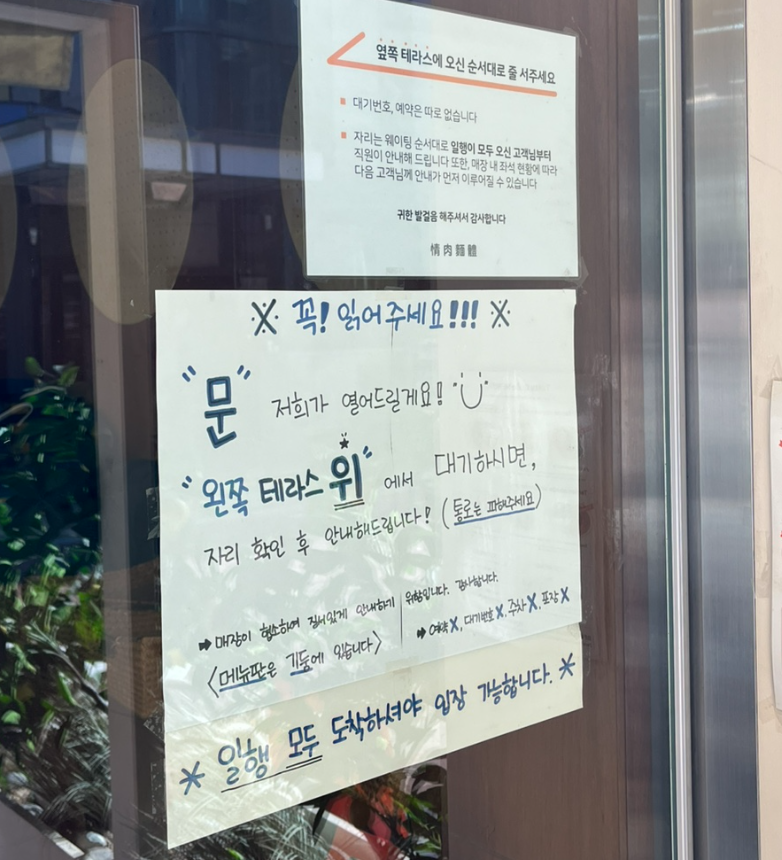 옆쪽 테라스에 오신 순서대로 줄 서주세요
대기번호, 예약은 따로 없습니다
자리는 웨이팅 순서대로 일행이 모두 오신 고객님부터
직원이 안내해 드립니다 또한, 매장 내 좌석 현황에 따라
다음 고객님께 안내가 먼저 이루어질 수 있습니다
귀한 발걸음 해주셔서 감사합니다
情肉麵體
※ 꼭! 읽어주세요!!! ※
"문" 저희가 열어드릴게요!
"왼쪽 테라스 위"에서 대기하시면,
자리 확인 후 안내해드립니다! (통로는 피해주세요)
➡ 매장이 협소하여 질서있게 안내하기 위함입니다. 감사합니다.
<메뉴판은 기둥에 있습니다>
➡ 예약 X, 대기번호 X, 주차 X, 포장 X
* 일행 모두 도착하셔야 입장 가능합니다. *